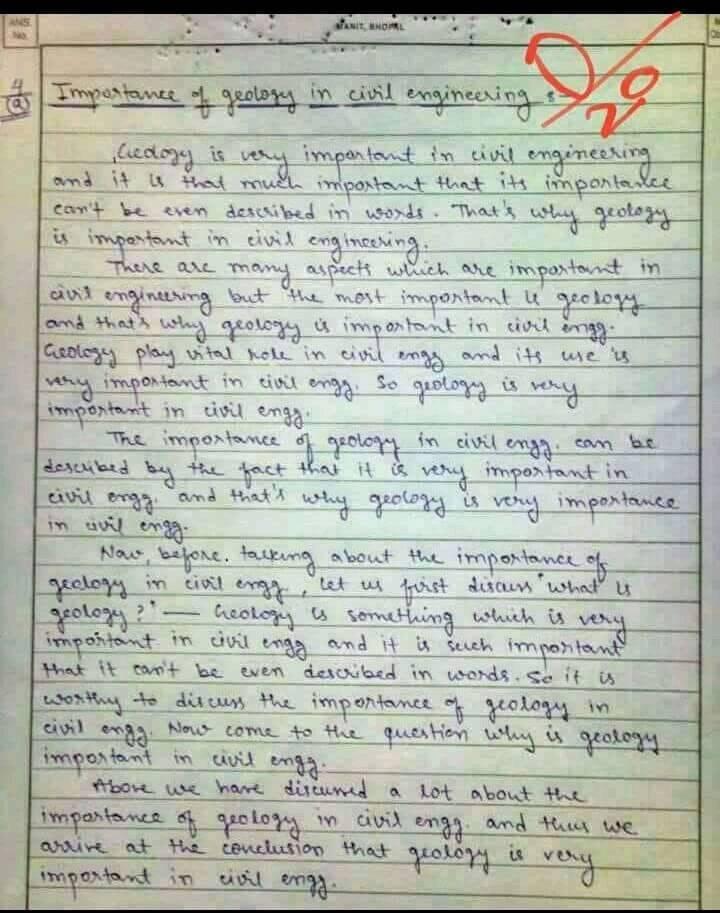 ANS. No.
MANIT, BHOPAL
0/20
4 (a) Importance of geology in civil engineering :-
Geology is very important in civil engineering
and it is that much important that its importance
can't be even described in words. That's why geology
is important in civil engineering.
There are many aspects which are important in
civil engineering but the most important is geology
and that's why geology is important in civil engg.
Geology play vital role in civil engg and its use is
very important in civil engg. So geology is very
important in civil engg.
The importance of geology in civil engg. can be
described by the fact that it is very important in
civil engg. and that's why geology is very importance
in civil engg.
Now, before. talking about the importance of
geology in civil engg, let us first discuss "what is
geology?" — Geology is something which is very
important in civil engg and it is such important
that it can't be even described in words. So it is
worthy to discuss the importance of geology in
civil engg. Now come to the question why is geology
important in civil engg.
Above we have discussed a lot about the
importance of geology in civil engg. and thus we
arrive at the conclusion that geology is very
important in civil engg.